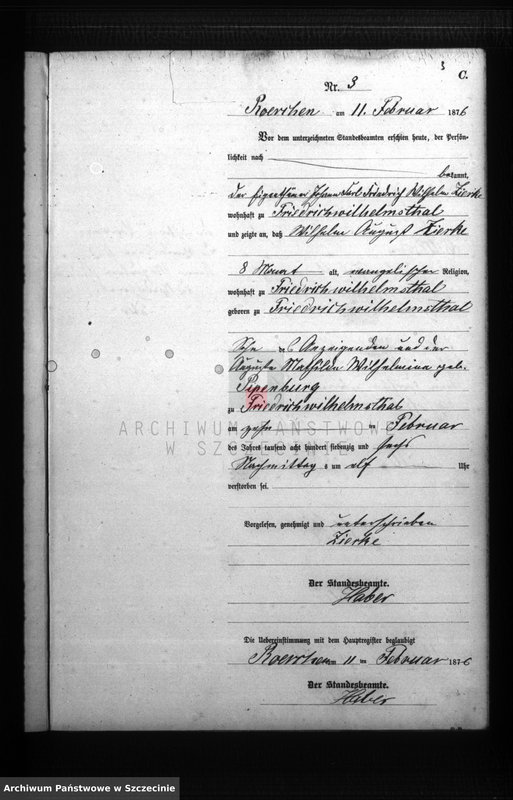 3
C.
Nr. 3
Roerchen am 11. Februar 1876
Vor dem unterzeichneten Standesbeamten erschien heute, der Persön-
lichkeit nach
bekannt,
der Eigenthümer Johann Carl Friedrich Wilhelm Zierke
wohnhaft zu Friedrichwilhelmsthal
und zeigte an, daß Wilhelm August Zierke
8 Monat alt, evangelischer Religion,
wohnhaft zu Friedrichwilhelmsthal
geboren zu Friedrichwilhelmsthal
Sohn des Anzeigenden und der
Auguste Mathilde Wilhelmina geb.
Piepenburg
zu Friedrichwilhelmsthal
am zehn ten Februar
des Jahres tausend acht hundert siebenzig und sechs
Nachmittags um elf Uhr
verstorben sei.
Vorgelesen, genehmigt und unterschrieben
Zierke
Der Standesbeamte.
Haber
Die Uebereinstimmung mit dem Hauptregister beglaubigt
Roerchen am 11 ten Februar 1876
Der Standesbeamte.
Haber
ARCHIWUM PAŃSTWOWE
W SZCZECINIE
Archiwum Państwowe w Szczecinie